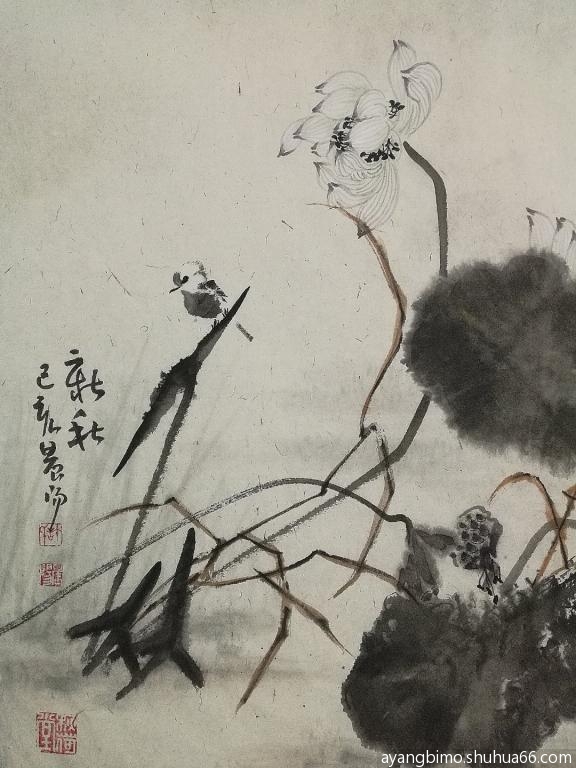 新秋
己亥晨阳
ayangbimo.shuhua66.com